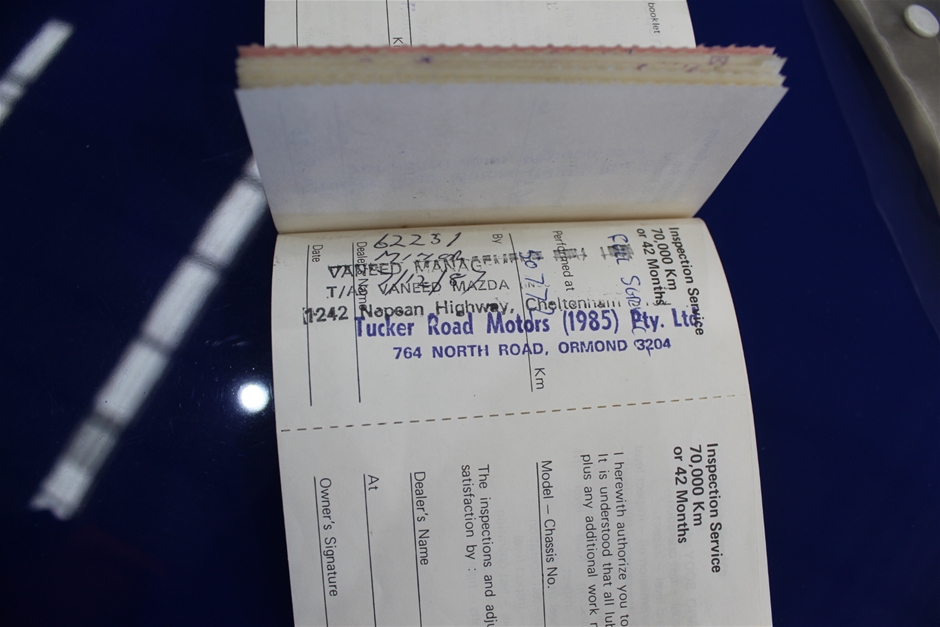 booklet
K
Inspection Service
70,000 Km
or 42 Months
FULL
Performed at
Km
By
Dealer's Name
Date
62231
T/AS VANEED MAZDA
1242 Nepean Highway, Cheltenham
Tucker Road Motors (1985) Pty. Ltd
764 NORTH ROAD, ORMOND 3204
Inspection Service
70,000 Km
or 42 Months
I herewith authorize you to
It is understood that all lub
plus any additional work
Model – Chassis No.
The inspections and adju
satisfaction by :
Dealer's Name
At
Owner's Signature